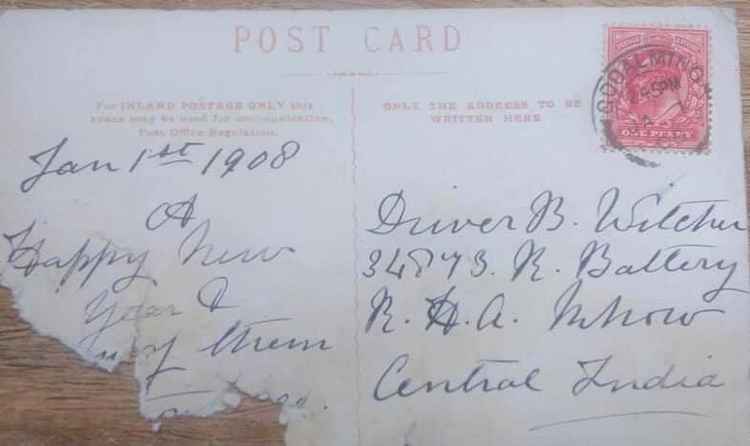 POST CARD
For INLAND POSTAGE ONLY this
space may be used for communication,
Post Office Regulation.
ONLY THE ADDRESS TO BE
WRITTEN HERE
GODALMING
ONE PENNY
Jan 1st 1908
A
Happy New
Year &
many of them
Driver B. Witcher
34873. R. Battery
R. H. A. Mhow
Central India